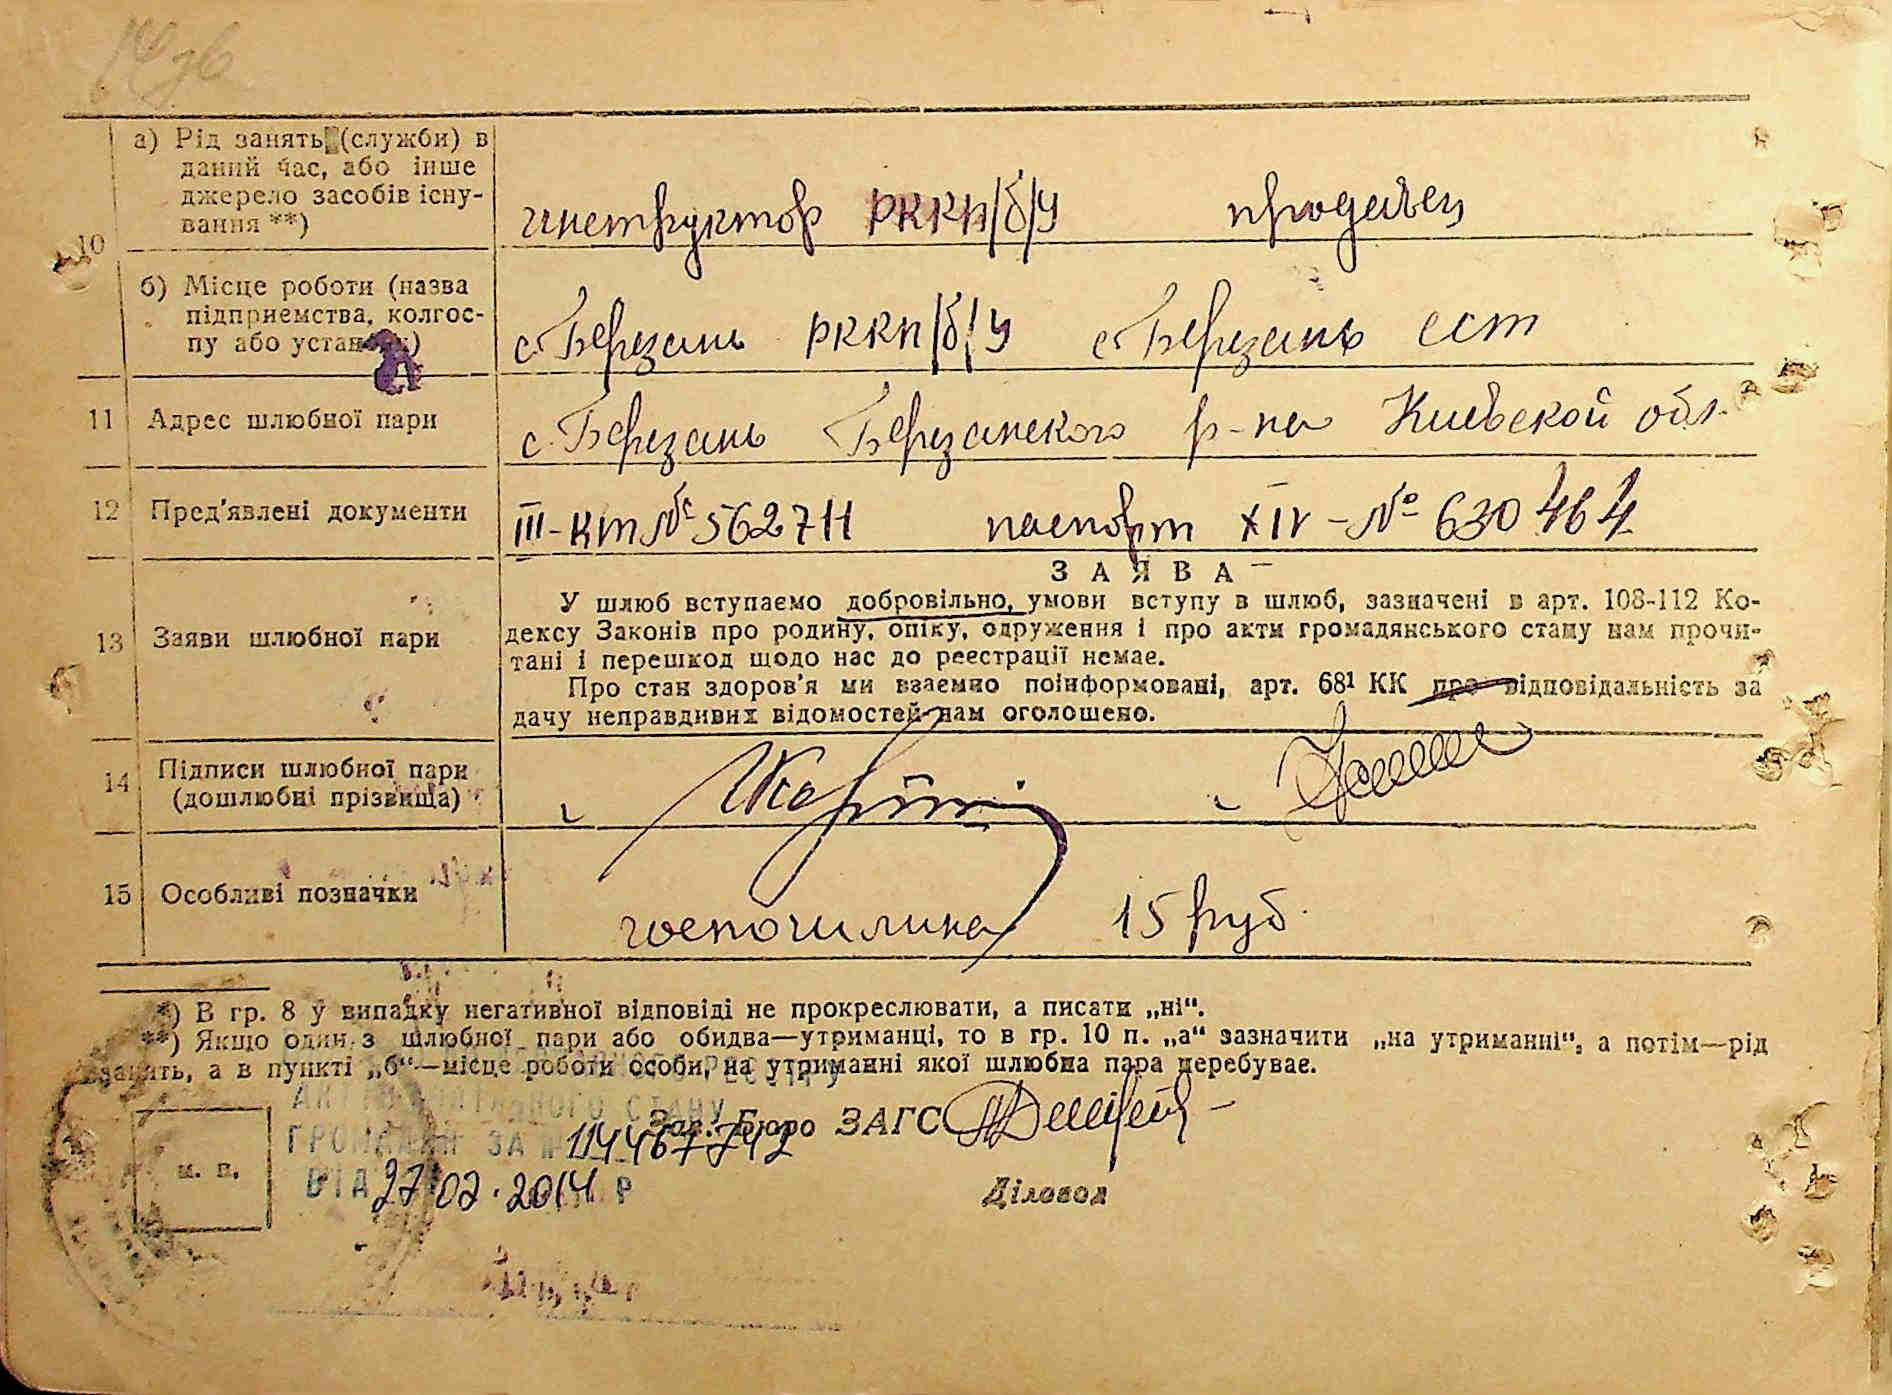 а) Рід занять (служби) в
даний час, або інше
джерело засобів існу-
вання **)
10
инструктор РККП/б/У продавец
б) Місце роботи (назва
підприємства, колгос-
пу або установи)
с. Березань РККП/б/У с. Березань ССТ
11 Адрес шлюбної пари
с. Березань Березанского р-на Киевской обл.
12 Пред'явлені документи
III-КТ № 5627Н паспорт XIV - № 630464
ЗАЯВА
13 Заяви шлюбної пари
У шлюб вступаємо добровільно, умови вступу в шлюб, зазначені в арт. 108-112 Ко-
дексу Законів про родину, опіку, одруження і про акти громадянського стану нам прочи-
тані і перешкод щодо нас до реєстрації немає.
Про стан здоров'я ми взаємно поінформовані, арт. 68¹ КК про відповідальність за
дачу неправдивих відомостей нам оголошено.
14 Підписи шлюбної пари
(дошлюбні прізвища)
15 Особливі позначки
госпошлина 15 руб.
*) В гр. 8 у випадку негативної відповіді не прокреслювати, а писати „ні“.
**) Якщо один з шлюбної пари або обидва—утриманці, то в гр. 10 п. „а“ зазначити „на утриманні“, а потім—рід
занять, а в пункті „б“—місце роботи особи, на утриманні якої шлюбна пара перебуває.
Зав. Бюро ЗАГС
АКТІВ СТАНУ
ГРОМАДЯН ЗА №
м. п.
ВІД 27.02.2014 Р
Діловод